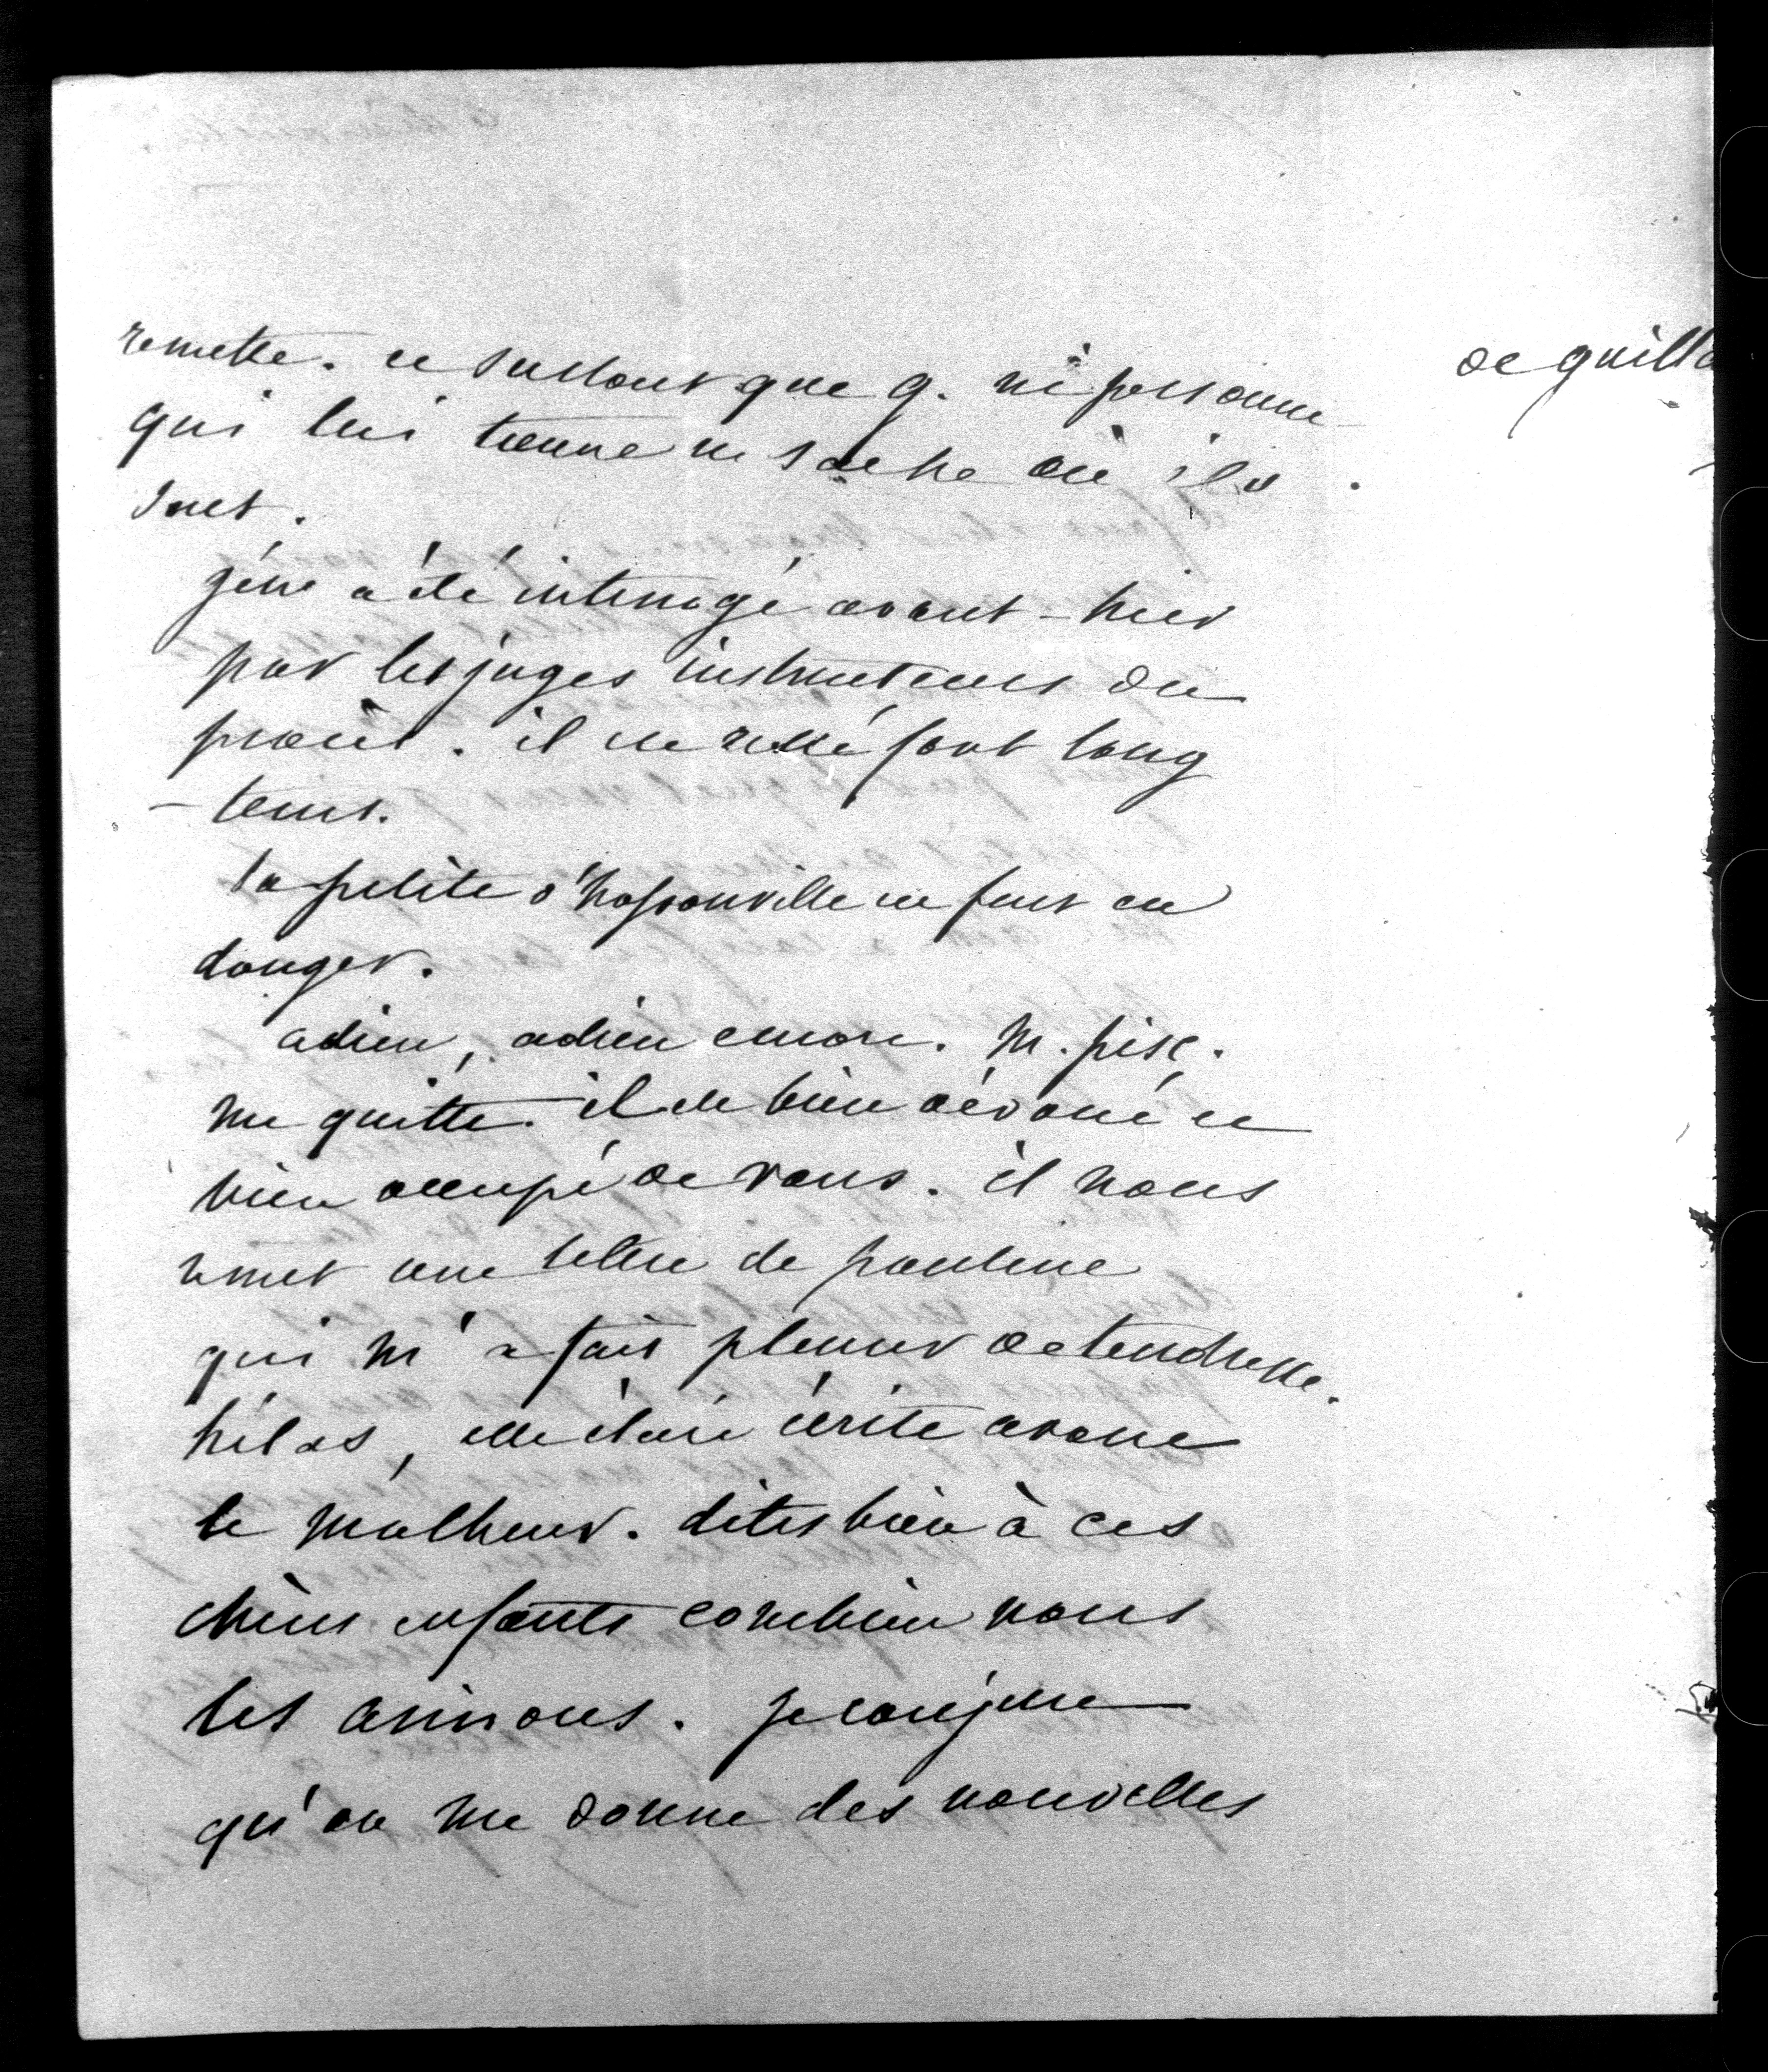 remette. et surtout que g. ni personne
qui lui tienne ne sache où ils
sont.
gène a été interrogé avant-hier
par les juges instructeurs du
procès. il est resté fort long
-tems.
la petite d'haussonville est fort en
danger.
adieu, adieu encore. M. pisc.
me quitte. il est bien dévoué et
bien occupé de vous. il nous
remet une lettre de pauline
qui m'a fait pleurer de tendresse.
hélas, elle était écrite avant
le malheur. dites bien à ces
chers enfants combien nous
les aimons. je conjure
qu'on me donne des nouvelles
de guill